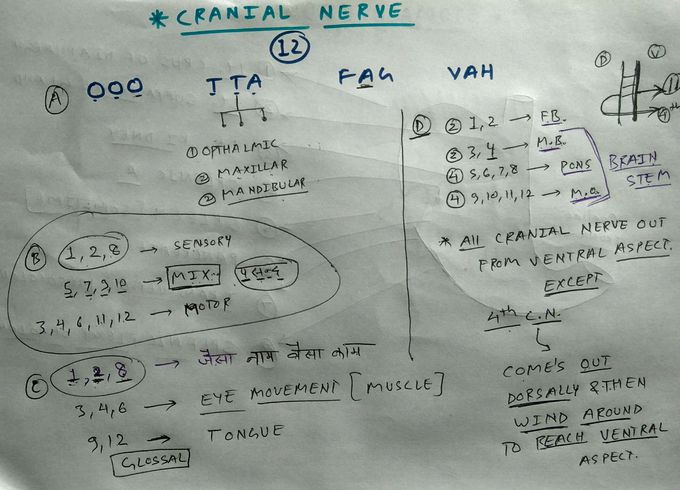 * CRANIAL NERVE
12
A OOO TTA FAG VAH
① OPTHALMIC
② MAXILLAR
② MANDIBULAR
B 1, 2, 8 → SENSORY
5, 7, 9, 10 → MIX
3, 4, 6, 11, 12 → MOTOR
C 1, 2, 8 → जैसा नाम वैसा काम
3, 4, 6 → EYE MOVEMENT [MUSCLE]
9, 12 → TONGUE
GLOSSAL
D V
D ② 1, 2 → F.B.
② 3, 4 → M.B.
④ 5, 6, 7, 8 → PONS
④ 9, 10, 11, 12 → M.O.
BRAIN
STEM
* All CRANIAL NERVE OUT
FROM VENTRAL ASPECT.
EXCEPT
4th C.N.
COME'S OUT
DORSALLY & THEN
WIND AROUND
TO REACH VENTRAL
ASPECT.